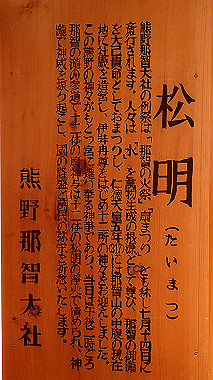 松明
（たいまつ）
熊野那智大社の例祭は、「那智の火祭、扇まつり」とも称し七月十四日に
斎行されます。人々は「水」を万物生成の根源として尊び、那智の御滝
を大己貴命としておまつりし、仁徳天皇五年(317)には那智山の中腹の現在
地に社殿を造営し、伊弉冉尊をはじめ十二所の神々をお迎えしました。
この熊野の神々がもとつ宮に還り奉る神事であり、当日は午後二時ごろ
那智の滝の参道で十二体の扇神輿は十二本の松明の浄火で清められ、神
威を振り起こし、国の隆盛と萬民の
を祈念いたします。
熊野那智大社